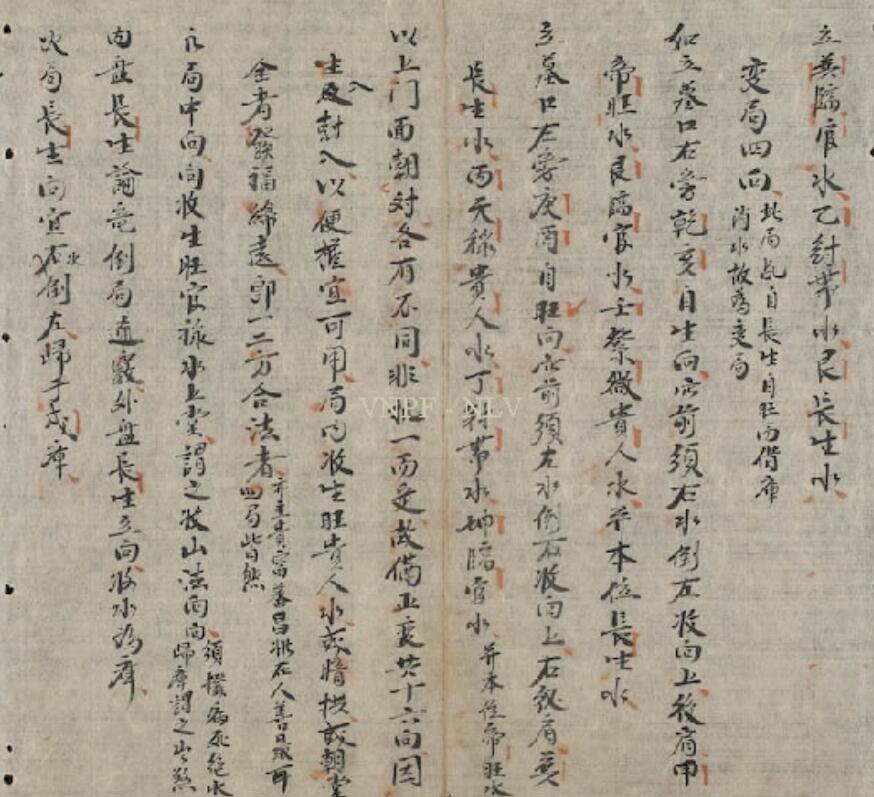 立巽臨官水乙封帶水艮長生水
変局四向 此局乱自長生自旺而借庫
消水故為変局
如立墓口右旁乾亥自生向向前須右水倒左收向上後肩甲
帝旺水艮臨官水壬紫微貴人水并本位長生水
立墓口左旁庚酉自旺向向前須左水倒右收向上右後肩巽
長生水丙天祿貴人水丁封帶水坤臨官水 并本位帝旺水
以上门面朝对各有不同非惟一而足茲備正変共十六向因
生及封入以便握宜可用局内收生旺貴人水或暗拱或朝堂
全者發福綿遠即一二方合法者 亦主貴富蕃昌
四局皆然
局中向向收生旺官祿水上堂謂之收山法向向 須撥病死絶水
歸庫謂之出煞
内盘長生論竜倒局通竅外盘長生立向收水為庫
火局長生向宜右水倒左歸于戌庫
VNPF - NLV